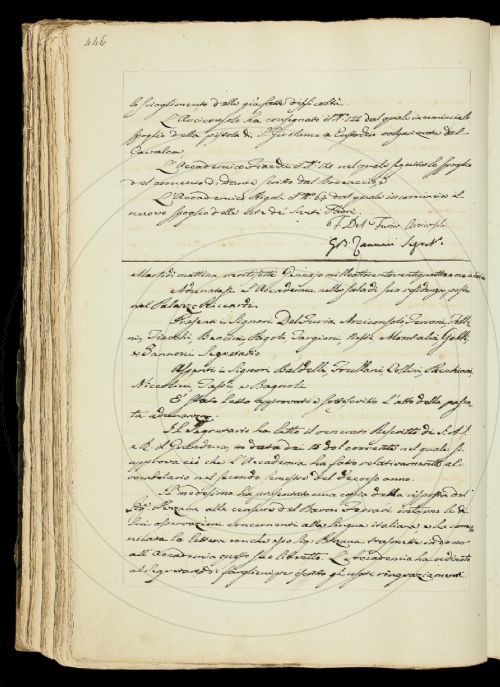 446
lo scioglimento delle già fatte difficoltà.
L'Arciconsolo ha consegnato il N.° 122 dal quale incomincia lo
spoglio della Pistola di S. Girolamo a Eustochio volgarizzata dal
Cavalca.
L'Accademico Fiacchi il N.° nel quale seguita lo spoglio
del comento di Dante scritto dal Boccaccio,
L'Accademico Rigoli il N.° 64 dal quale incomincia il
nuovo spoglio delle Vite dei Santi Padri.
F. Del Furia Arciconsolo
G. B. Zannoni Segret.
Martedì mattina, ventisette Gennajo mille ottocento ventiquattro a ore
Adunatasi l'Accademia nella sala di sua residenza posta
nel Palazzo Riccardi.
Presenti i Signori Del Furia Arciconsolo, Ferroni,
Fiacchi, Bencini, Rigoli, Targioni, Montalvi,
e Zannoni Segretario
Assenti i Signori Baldelli, Frullani, Collini,
Niccolini, e Bagnoli
È stato letto, approvato e sottoscritto l'atto della passa-
ta adunanza.
Il Segretario ha letto il venerato Rescritto di S. A. I.
e R. il Granduca, in data dei 15 del corrente nel quale si
approva ciò che l'Accademia ha fatto relativamente al
vocabolario nel secondo semestre del decorso anno.
Il medesimo ha presentato una copia della risposta del
Sig. alle censure del Baron Ferrari intorno le di
lui osservazioni concernenti alla lingua italiana, e ha comu-
nicata la lettera con che esso Sig. trasmette in dono
all'Accademia questo suo libretto. L'Accademia ha ordinato
al Segretario di per iscritto gli usati ringraziamenti.